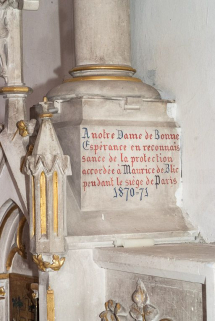 A notre Dame de Bonne
Espérance en reconnais
sance de la protection
accordée à Maurice de Blic
pendant le siège de Paris
1870-71